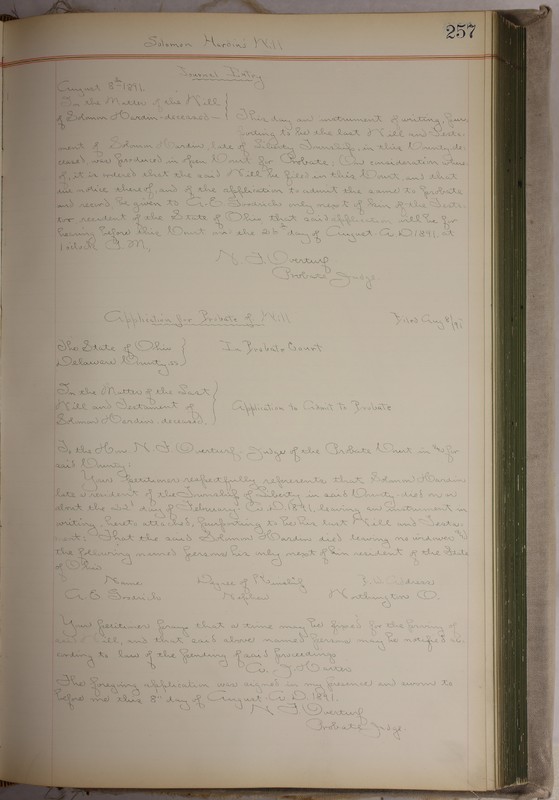 257
Solomon Hardin's Will
Journal Entry
August 8th 1891
In the Matter of the Will
of Solomon Hardin deceased
This day an instrument of writing, purporting
to be the last Will and Testament
of Solomon Hardin, late of Liberty Township, in this County, deceased,
was produced in open Court for Probate; On consideration thereof,
it is ordered that the said Will be filed in this Court, and that
due notice thereof, and of the application to admit the same to probate
and record be given to A. E. only next of kin of the Testator
resident of the State of Ohio that said application will be for
hearing before this Court on the day of August A. D. 1891, at
1 o'clock P. M.
N. F. Overturf
Probate Judge
Application for Probate of Will
Filed Aug 8/91
The State of Ohio
Delaware County ss
In Probate Court
In the Matter of the Last
Will and Testament of
Solomon Hardin, deceased.
Application to Admit to Probate
To the Hon N. F. Overturf, Judge of the Probate Court in & for
said County:
Your Petitioner respectfully represents that Solomon Hardin
late a resident of the Township of Liberty in said County died on or
about the day of February A. D. 1891, leaving an instrument in
writing, hereto attached, purporting to be his last Will and Testament.
That the said Solomon Hardin died leaving no widow &
the following named persons his only next of kin resident of the State
of Ohio
Name
Degree of Kinship
P. O. Address
A. E.
Nephew
Worthington O.
Your petitioner prays that a time may be fixed for the proving of
said Will, and that said above named persons may be notified according
to law of the pending of said proceedings
The foregoing application was signed in my presence and sworn to
before me this 8th day of August A. D. 1891.
N. F. Overturf
Probate Judge